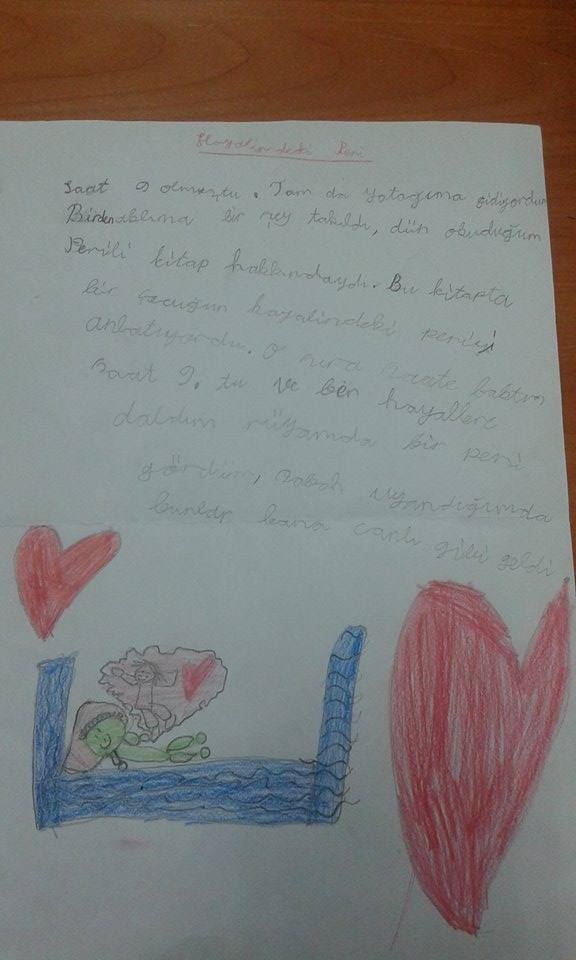 Hayalindeki Peri
Saat 9 olmuştu. Tam da yatağıma gidiyordum
Birden aklıma bir şey takıldı, dün okuduğum
Perili kitap hakkındaydı. Bu kitapta
bir çocuğun hayalindeki periyi
anlatıyordu. O sıra saate baktım
saat 9. tu ve ben hayallere
daldım rüyamda bir peri
gördüm, sabah uyandığımda
bunlar bana canlı gibi geldi